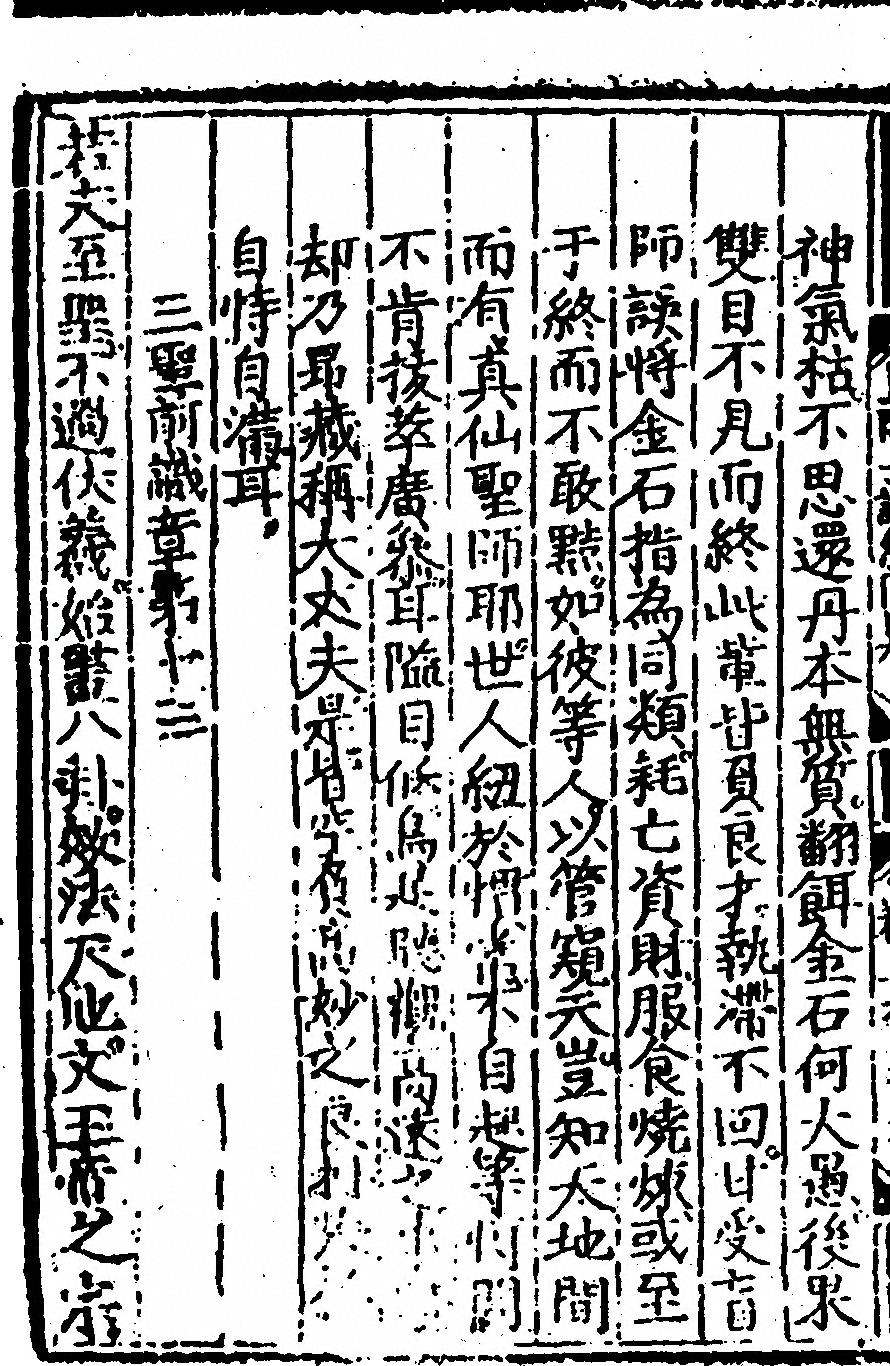 神氣枯不思還丹本無質翻餌金石何大愚後果
雙目不見而終此輩皆負良才執滯不回甘受盲
師誤將金石指為同類耗亡資財服食燒煉或至
于終而不敢黜如彼等人以管窺天豈知天地間
而有真仙聖師耶世人紐於慣 不自 等
不肯拔萃廣叅耳隘目低
却乃昂藏稱大丈夫是皆 妙之
自恃自滿耳
三聖前識章第十三
若夫至聖不過伏羲始畫八卦妙法天地文王帝之宗